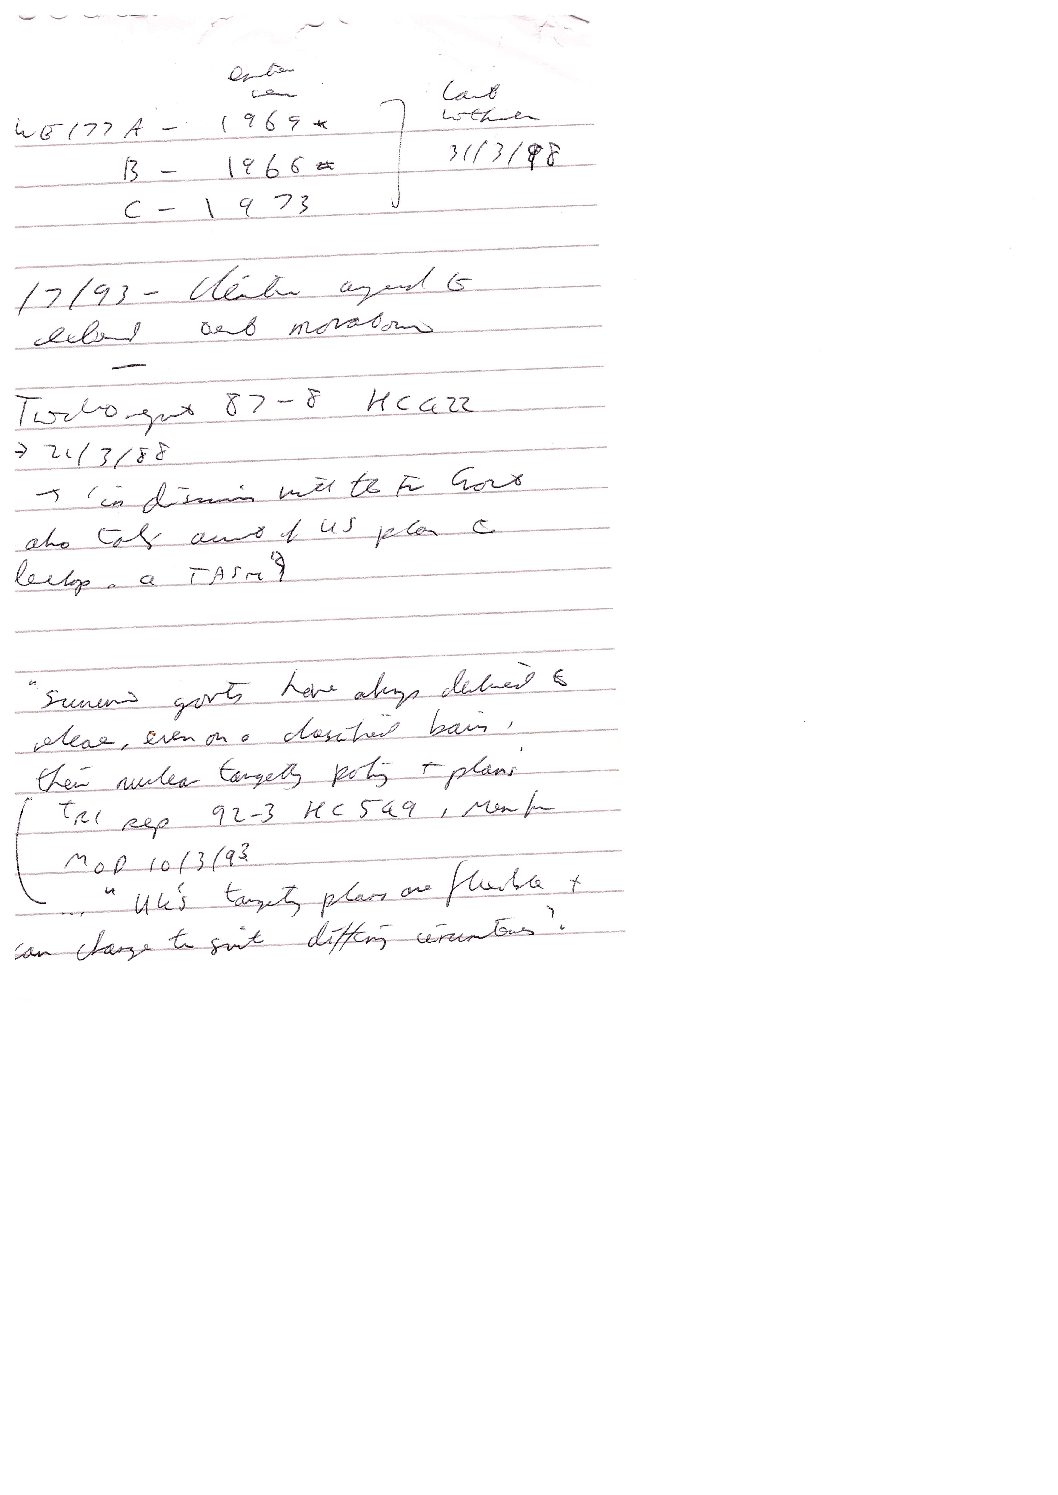 WE177A - 1969*
B - 1966*
C - 1973
Last
31/3/98
1/7/93 - Clinton agreed to
extend test
87-8 HC422
→ 21/3/88
→ 'in discussion with the Fr Govt
also take account of US plan to
develop a TASM'?
"Successive govts have always declined to
release, even on a classified basis,
their nuclear targetting policy + plans'
TRI rep 92-3 HC 549, Mem fr
MOD 10/3/93
... "UK's targetting plans are flexible +
can change to suit differing circumstances".